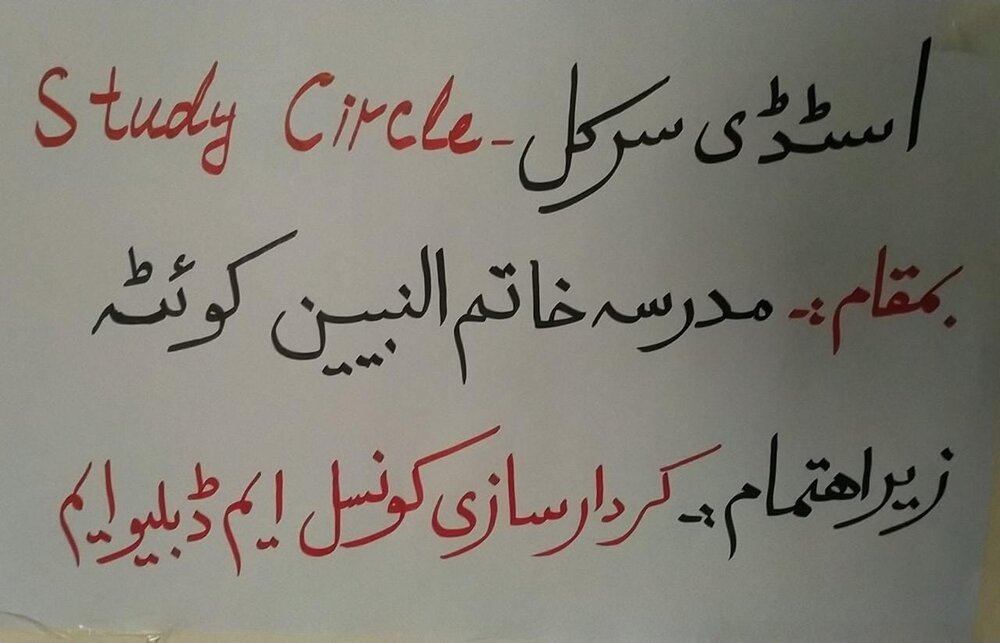 اسٹڈی سرکل - Study Circle
بمقام :۔ مدرسہ خاتم النبیین کوئٹہ
زیر اھتمام :۔ کردار سازی کونسل ایم ڈبلیو ایم